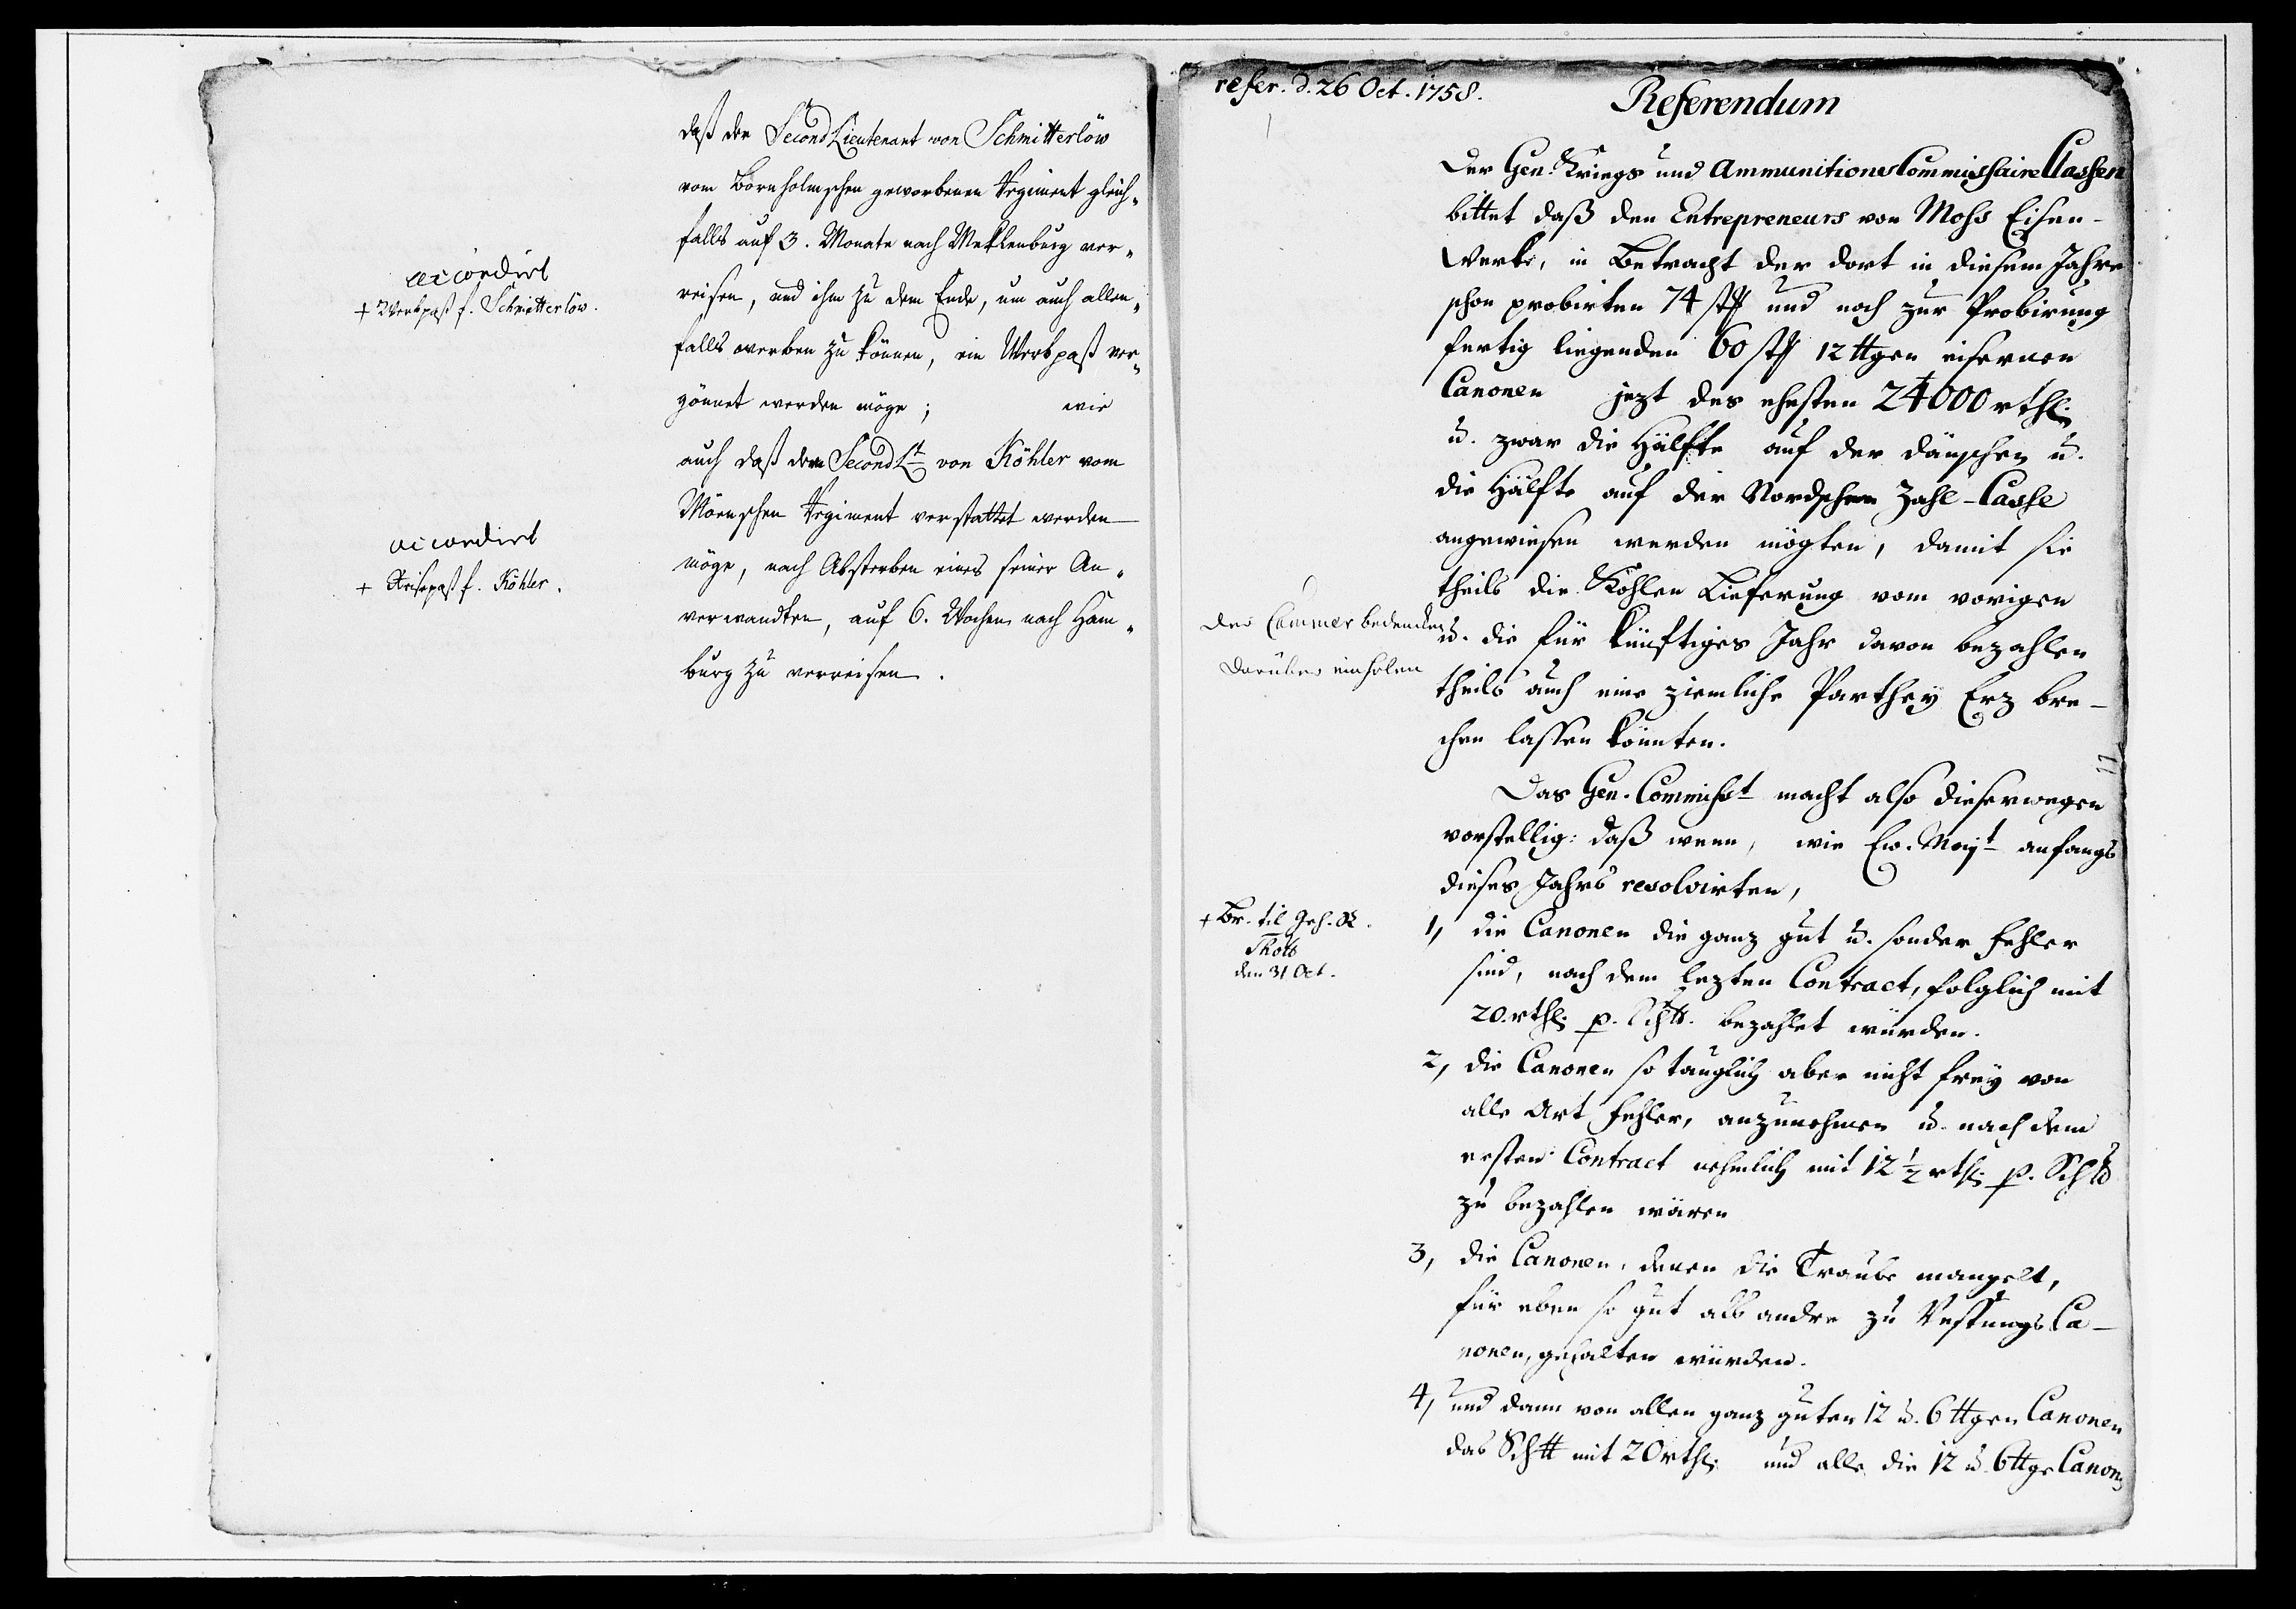 daß der Second Lieutenant von Schmitterlöw
vom Bornholmschen geworbenen Regiment gleich-
falls auf 3. Monate nach Meklenburg ver-
reisen, und ihm zu dem Ende, um auch allen-
falls werben zu können, ein Werbpaß ver-
gönnet werden möge; wie
auch daß dem Second Lt von Köhler vom
Möenschen Regiment verstattet werden
möge, nach Absterben eines seiner An-
verwandten, auf 6. Wochen nach Ham-
burg zu verreisen.
accordirt
+ Werbpaß f. Schmitterlöw.
accordirt
+ Reisepaß f. Köhler.
refer. d. 26 Oct. 1758.
Referendum
Der Gen. Kriegs und Ammunitions Commissaire Classen
bittet daß den Entrepreneurs von Moss Eisen-
Werke, in Betracht der dort in diesem Jahre
schon probirten 74 stk und noch zur Probirung
fertig liegenden 60 stk 12 ttgen eisernen
Canonen jezt des ehesten 24000 rthl.
u. zwar die Hälfte auf der dänschen u.
die Hälfte auf der Nordschen Zahl-Casse
angewiesen werden mögten, damit sie
theils die Kohlen Lieferung vom vorigen
u. die für künftiges Jahr davon bezahlen
theils auch eine ziemliche Parthey Erz bre-
chen lassen könnten.
Der Cammer bedencken
darüber einholen
Das Gen. Commisst macht also dieserwegen
vorstellig: daß wenn, wie Ew. Mayt anfangs
dieses Jahrs resolvirten,
1, die Canonen die ganz gut u. sonder Fehler
sind, nach dem lezten Contract, folglich mit
20 rthl. p. Schtt. bezahlet würden.
+ Br. til Geh. R.
Thott
den 31 Oct.
2, die Canonen so tauglich aber nicht frey von
alle Art Fehler, anzunehmen u. nach dem
ersten Contract nehmlich mit 12 1/2 rthl. p. Schtt
zu bezahlen wären
3, die Canonen, denen die Traube mangelt,
für eben so gut als andre zu Vestungs Ca-
nonen, gehalten würden.
4, und dann von allen ganz guten 12 u. 6 ttgen Canonen
das Schtt mit 20 rthl. und alle die 12 u. 6 ttge Canon